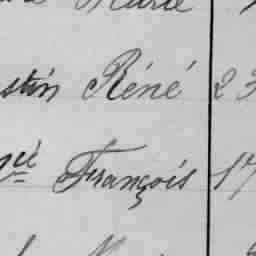 Marie
stin Réné 23
né François 17